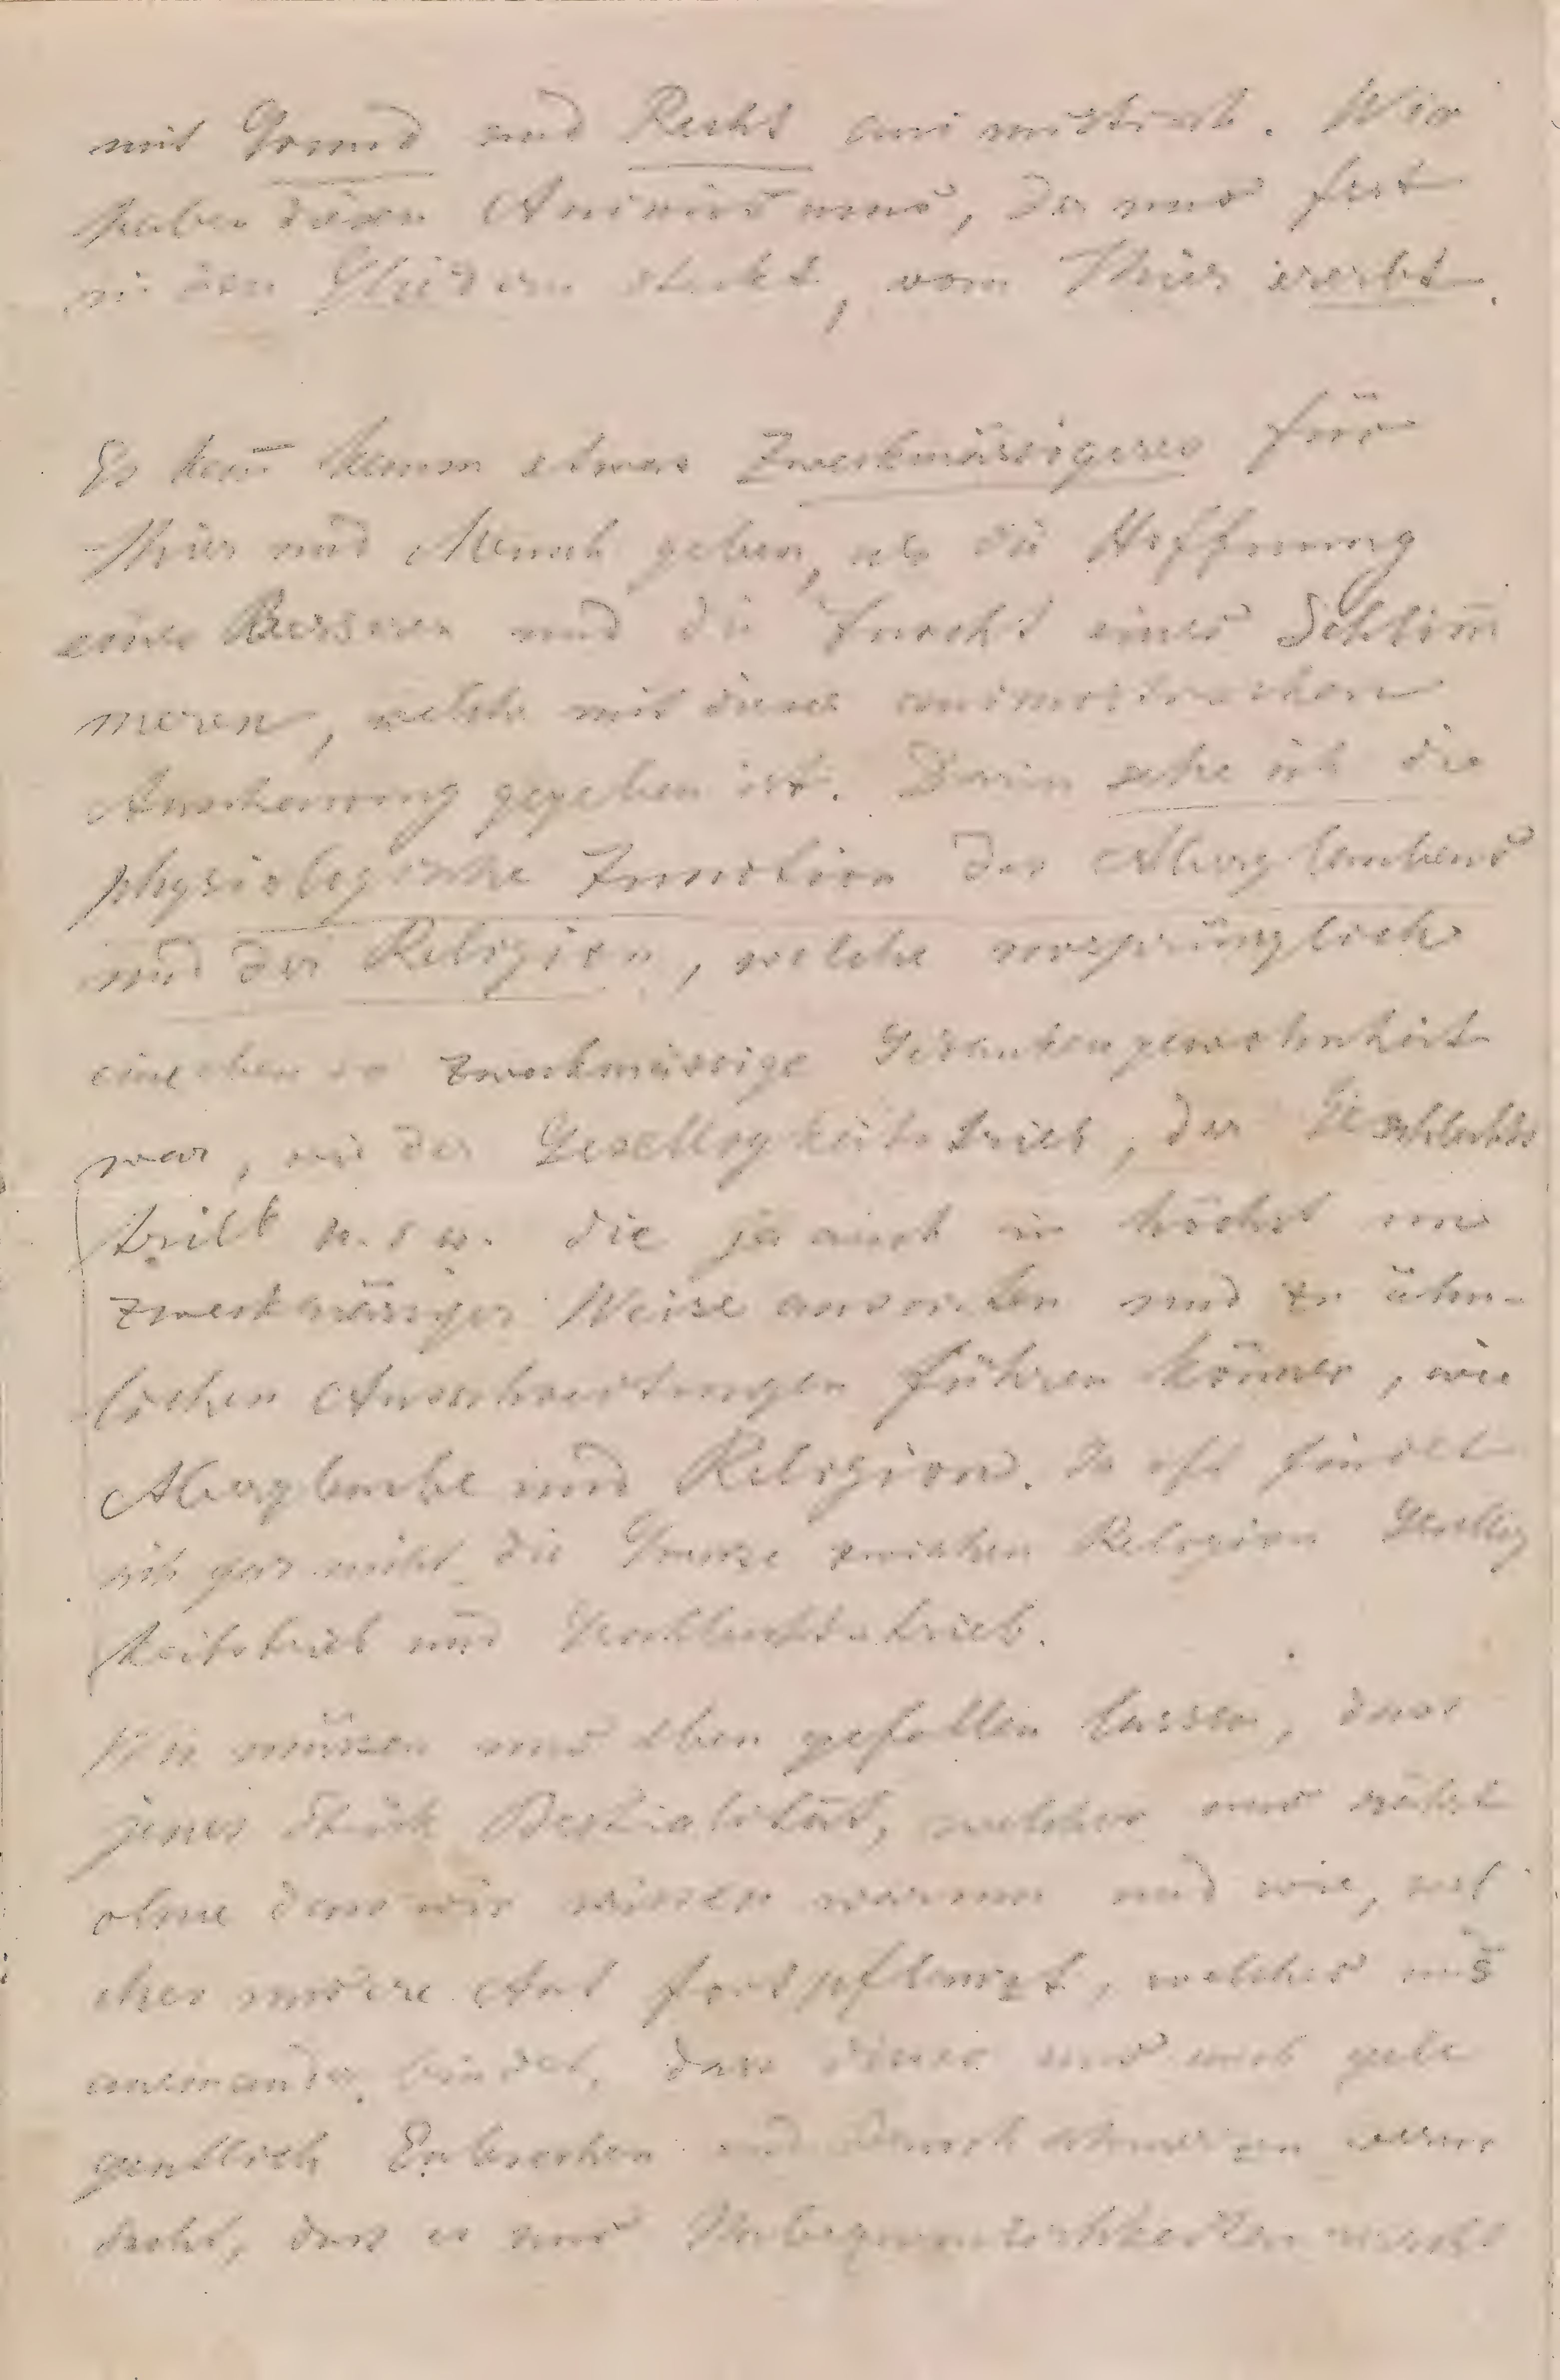 mit Grund und Recht animistisch. Wir
haben diesen Animismus, der uns fest
in den Gliedern steckt, vom Thier ererbt.
Es kan̅ kaum etwas Zweckmässigeres für
Thier und Mensch geben, als die Hoffnung
eines Besseren und die Furcht eines Schlim̅
meren, welche mit dieser animistischen
Anschauung gegeben ist. Darin sehe ich die
physiologische Function des Aberglaubens
und der Religion, welche ursprünglich
eine eben so zweckmässige Gedankengewohnheit
war, wie der Geselligkeitstrieb, der Geschlechts
trieb u. s w. die ja auch in höchst un
zweckmässiger Weise ausarten und zu ähn-
lichen Ausschreitungen führen können, wie
Aberglaube und Religion. Da oft findet
sich gar nicht die Grenze zwischen Religion Gesellig
keitstrieb und Geschlechtstrieb.
Wir müssen uns eben gefallen lassen, dass
jenes Stück Bestialität, welches uns nährt
ohne dass wir wissen warum und wie, wel
ches unsere Art fortpflanzt, welches uns
aneinander bindet, dass dieses uns auch gele
gentlich Erbrechen und Bauchschmerzen verur
sacht, dass es uns Unbequemlichkeiten macht